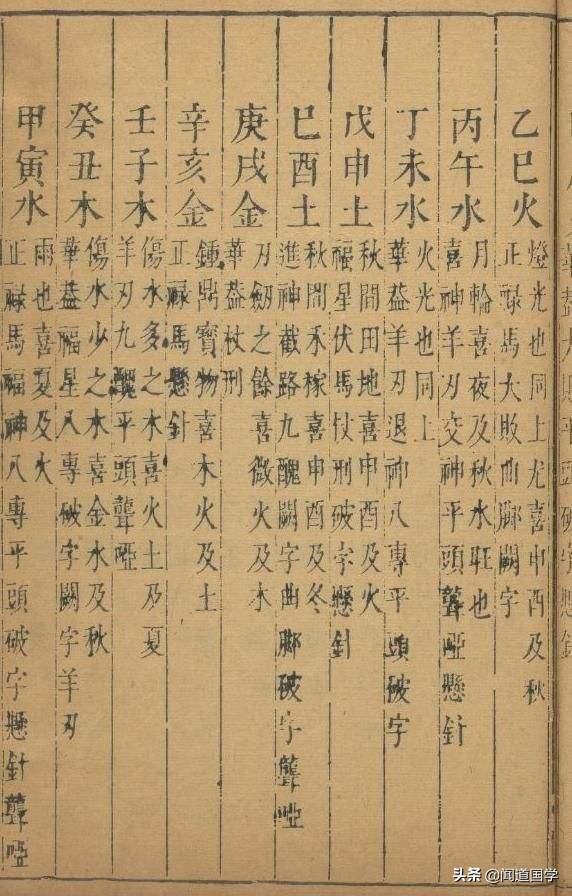 乙巳火
燈光也同上尤喜申酉及秋
正祿馬大敗曲脚闕字
丙午水
月輪喜夜及秋水旺也
喜神羊刃交神平頭聾啞懸針
丁未水
火光也同上
華葢羊刃退神八專平頭破字
戊申土
秋間田地喜申酉及火
福星伏馬仗刑破字懸針
巳酉土
秋間禾稼喜申酉及冬
進神截路九醜闕字曲脚破字聾啞
庚戌金
刃劒之餘喜微火及水
華葢杖刑
辛亥金
鍾鼎寶物喜木火及土
正祿馬懸針
壬子木
傷水多之木喜火土及夏
羊刃九醜平頭聾啞
癸丑木
傷水少之木喜金水及秋
華葢福星八專破字闕字羊刃
甲寅水
雨也喜夏及火
正祿馬福神八專平頭破字懸針聾啞
头条 @闻道国学